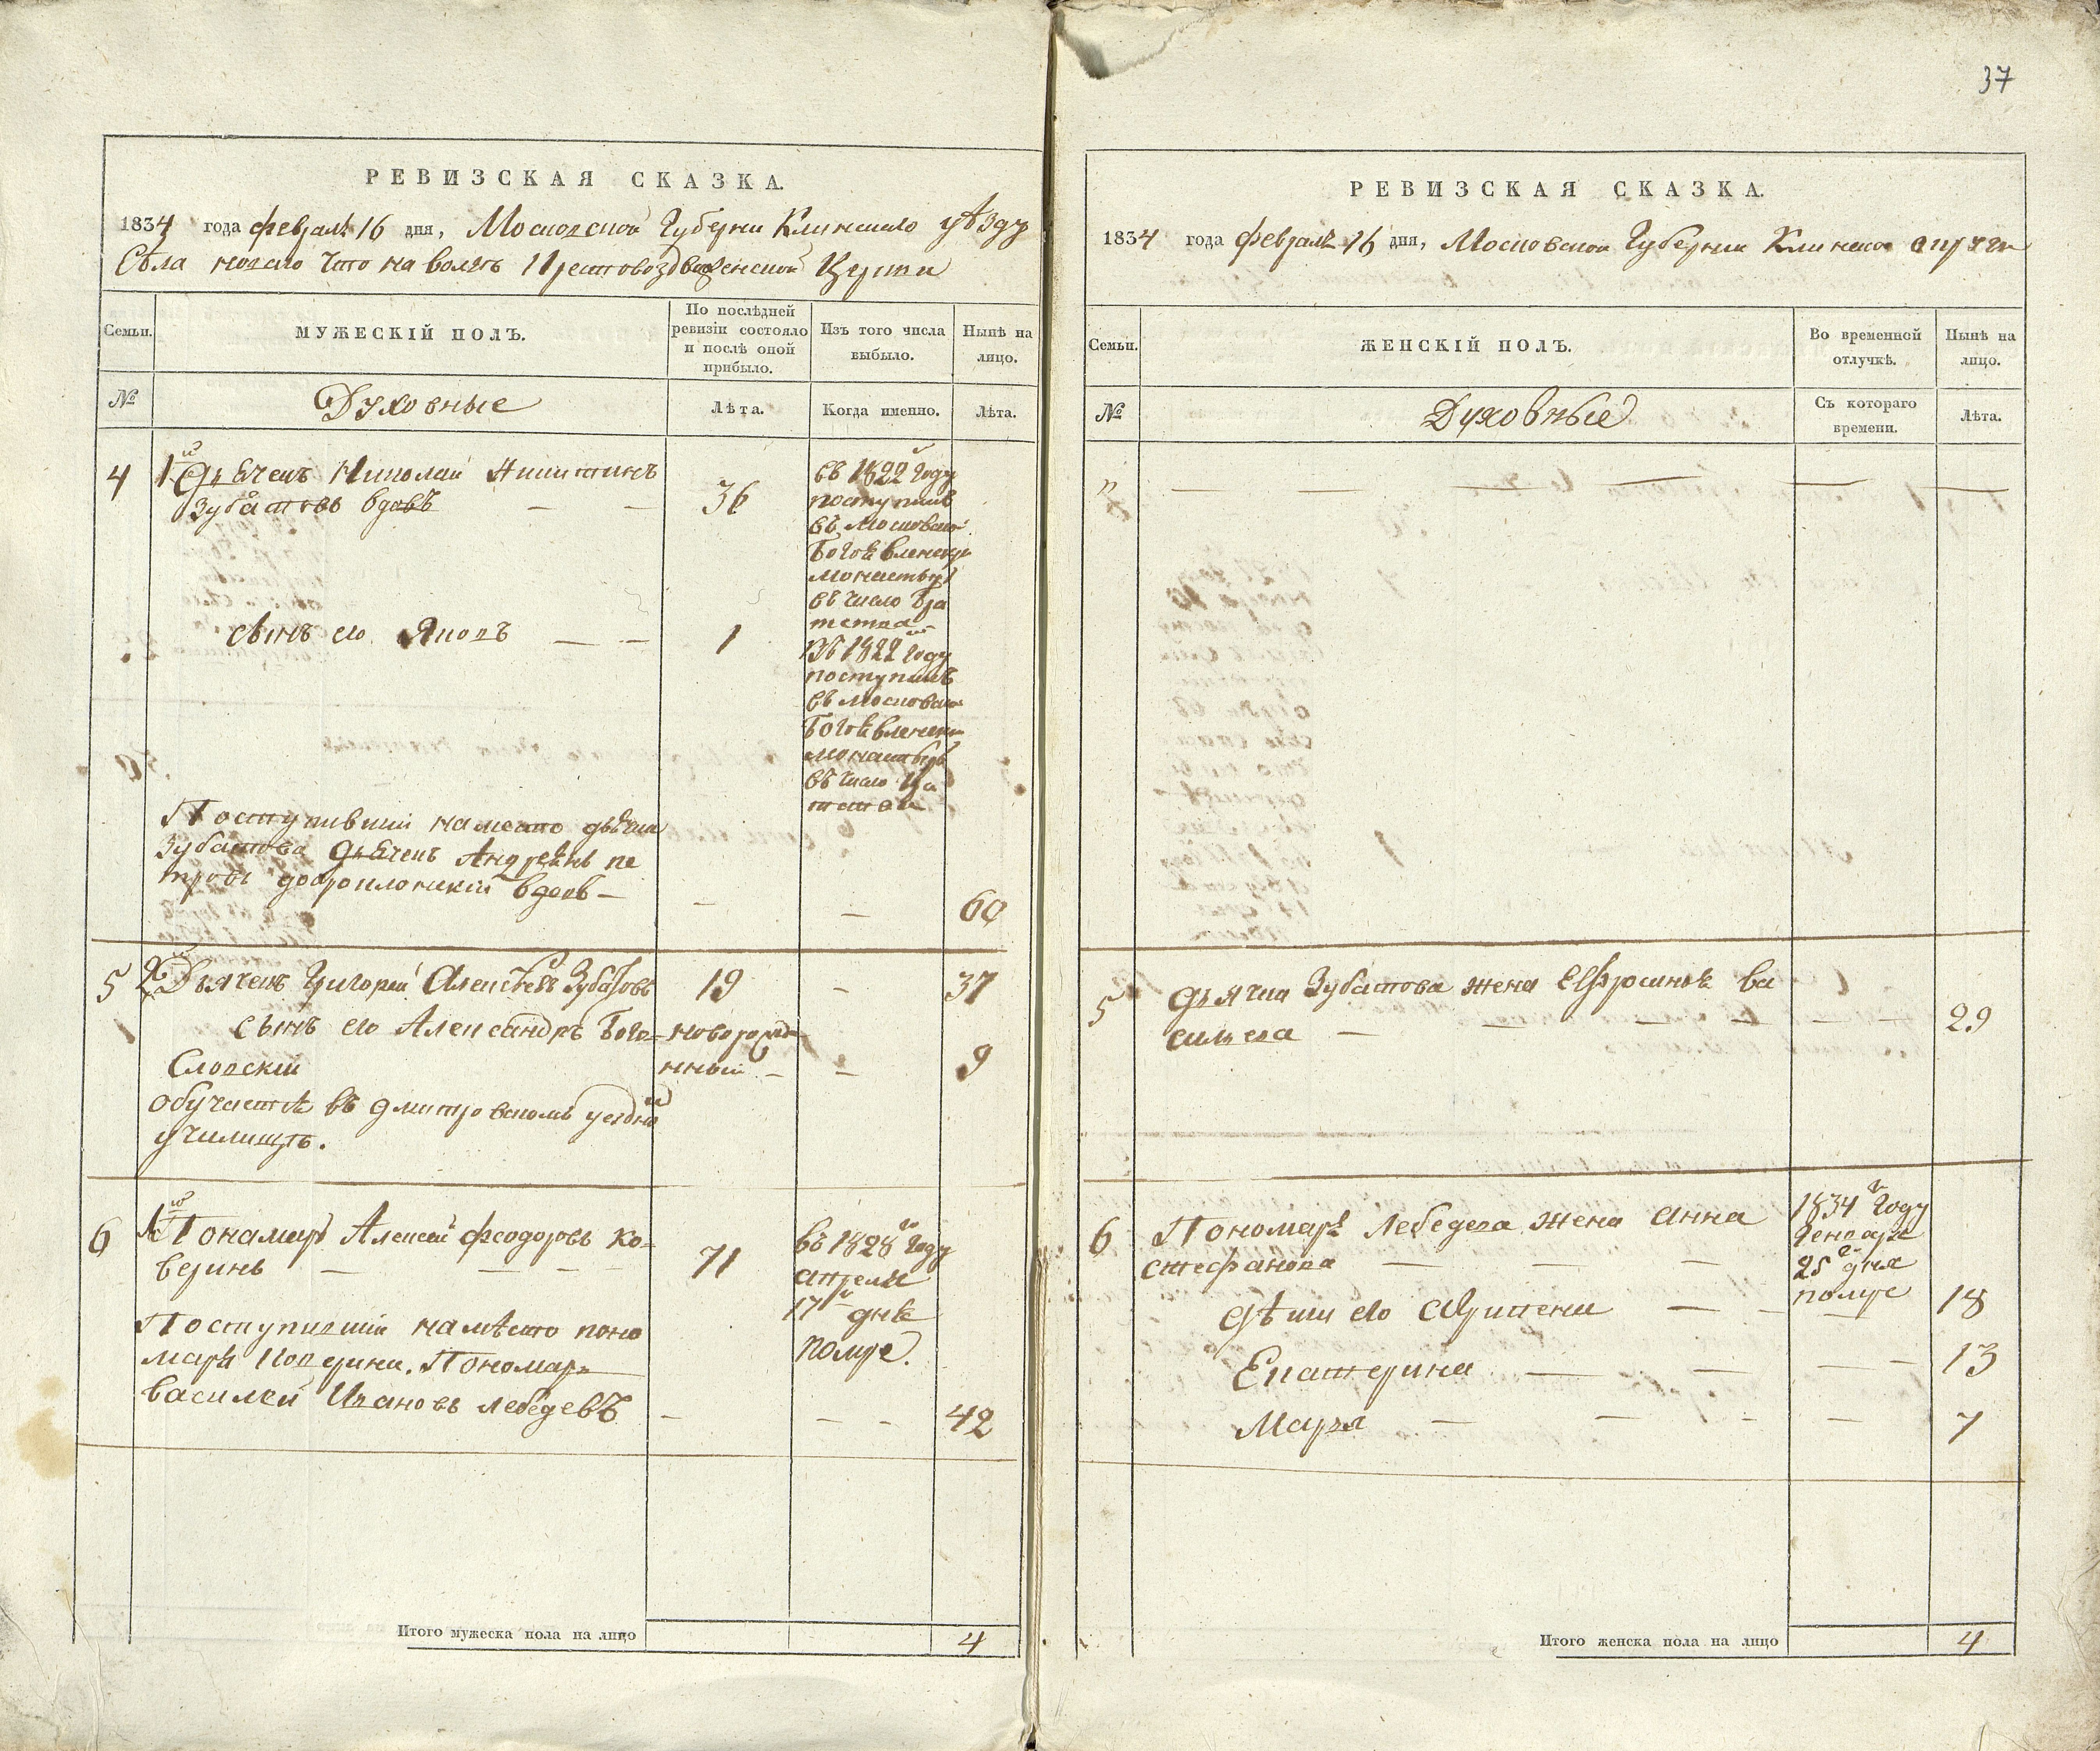 37
РЕВИЗСКАЯ СКАЗКА.
1834 года февраля 16 дня, Московской Губерни Клинскаго уѣзду
Села новаго что на волѣ Крестовоздвиженской Церкви
Семьи.
МУЖЕСКІЙ ПОЛЪ.
По послѣдней ревизіи состояло и послѣ оной прибыло.
Изъ того числа выбыло.
Нынѣ на лицо.
№
Духовные
Лѣта.
Когда именно.
Лѣта.
4
1й Дьячекъ Николай Никитинъ
Зубатовъ вдовъ — —
36
въ 1822 году
поступилъ
въ Московской
Богоявленскій
монастырь
въ число Бра
тства
сынъ его Яковъ — —
1
въ 1822 году
поступилъ
въ Московской
Богоявленскій
монастырь
въ число
Поступившій на место дьячка
Зубатова Дьячекъ Андреянъ пе
тровъ вдовъ —
—
—
60
5
2й Дьячекъ Григорий Алексѣевъ Зубатовъ
19
—
37
сынъ его Александръ Бого-
Словскій
новорожде
нный —
—
9
обучается въ дмитровскомъ уездном
училищѣ.
6
1й Понамарь Алексей феодоровъ Ко-
веринъ — — — —
71
въ 1828 году
апреля
17 дня
помре.
Поступивший на мѣсто поно
маря Коверина. Пономарь
Василей Ивановъ лебедевъ
—
— —
42
Итого мужеска пола на лицо
4
РЕВИЗСКАЯ СКАЗКА.
1834 года февраля 16 дня, Московской Губернии Клинской округи
Семьи.
ЖЕНСКІЙ ПОЛЪ.
Во временной отлучкѣ.
Нынѣ на лицо.
№
Духовные
Съ котораго времени.
Лѣта.
" — — — — — —
5
Дьячка Зубатова жена Ефросинья ва
сильева — — — — — —
29
6
Пономаря Лебедева жена Анна
стефанова — — —
1834 году
Генваря
25 дня
помре
дѣти его Акулина —
—
18
Екатерина — —
— —
13
Марья — — —
—
7
Итого женска пола на лицо
4